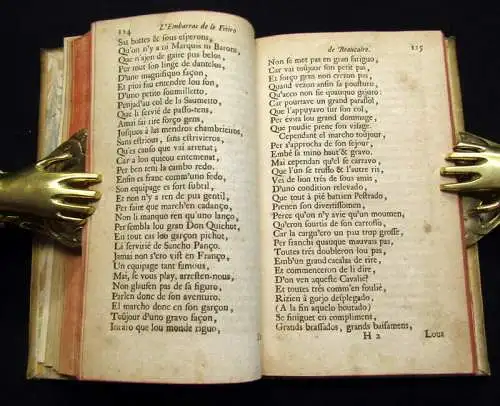 114 L'Embarras de la Fieiro
Sai bottes & sous esperons,
Qu'on n'y a ni Marquis ni Baron,
Que n'ajen de gaire pus belos,
Per tout son linge de dantelos,
D'uno magnifiquo façon,
Et piei fau entendre lou son,
D'uno petito soumilletto,
Penjad'au col de la Saumetto,
Que li servié de passo-tens,
Ansi fai rire forço gens,
Jusquos à las mendros chambrieiros,
Sans estrious, sans estrivieros,
Qu'es causo que vai arrenat;
Car a lou queou entemenat,
Per ben tenï la cambo redo.
Enfin es franc comm'uno fedo,
Son equipage es fort subtil,
Et non n'y a ren de pus gentil,
Per faire que march'en cadanço,
Non li manquo ren qu'uno lanço,
Per sembla lou gran Don Quichot,
En tout cas lou garçon pichot,
La servirié de Sancho Panço.
Jamai non s'ero vist en Franço,
Un equipage tant famous,
Mai, se vous play, arresten-nous,
Non glousen pas de sa figuro,
Parlen donc de son aventuro.
El marcho donc en son garçon,
Toujour d'uno gravo façon,
Intaio que lou monde riguo,
de Beaucaire. 115
Non se met pas en gran fatiguo,
Car vai toujour son petit pas,
Et forço gens non crezien pas,
Quand vezon ansin sa pousturo,
Qu'acco non se quauquo gajuro:
Car pourtavo un grand parassol,
Que l'appuyavo sur son col,
Per evita lou grand dommage,
Que poudie prene son visage.
Cependant el marcho toujour,
Per s'approcha de son sejour,
Embé sa mino haut' & gravo.
Mai cependan qu'el se carravo,
Que l'un se truffo & l'autre ris,
Vei de lion très de sous amis,
D'uno condition relevado,
Que tout à pié batien l'estrado,
Prenien son divertissomen,
Perce qu'on n'y avie qu'un moumen,
Qu'eron sourtis de son carrosso,
Car la cargu'ero un pau trop grosso,
Per franchi quauque mauvais pas,
Toutes très doubleron lou pas,
Emb'un grand cacalas de rire,
Et commenceron de li dire,
D'on ven aqueste Cavalié?
Et toutes très comm'en soulié,
Rizien à gorjo desplegado,
(A la fin aquello boutado)
Se finiguet en compliment,
Grands brassados, grands baisamens,
H 2 Loua